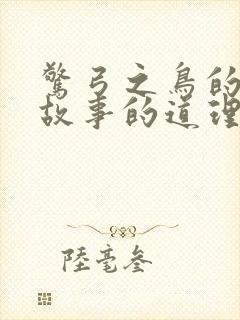 驚弓之鳥的
故事的道理
陸毫參